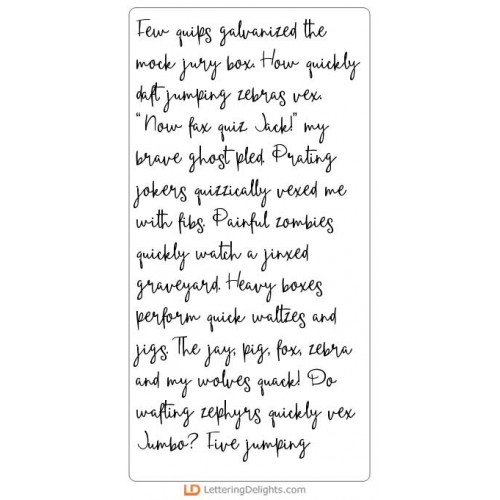 Few quips galvanized the
mock jury box. How quickly
daft jumping zebras vex.
"Now fax quiz Jack!" my
brave ghost pled. Prating
jokers quizzically vexed me
with fibs. Painful zombies
quickly watch a jinxed
graveyard. Heavy boxes
perform quick waltzes and
jigs. The jay, pig, fox, zebra
and my wolves quack! Do
wafting zephyrs quickly vex
Jumbo? Five jumping
LD LetteringDelights.com